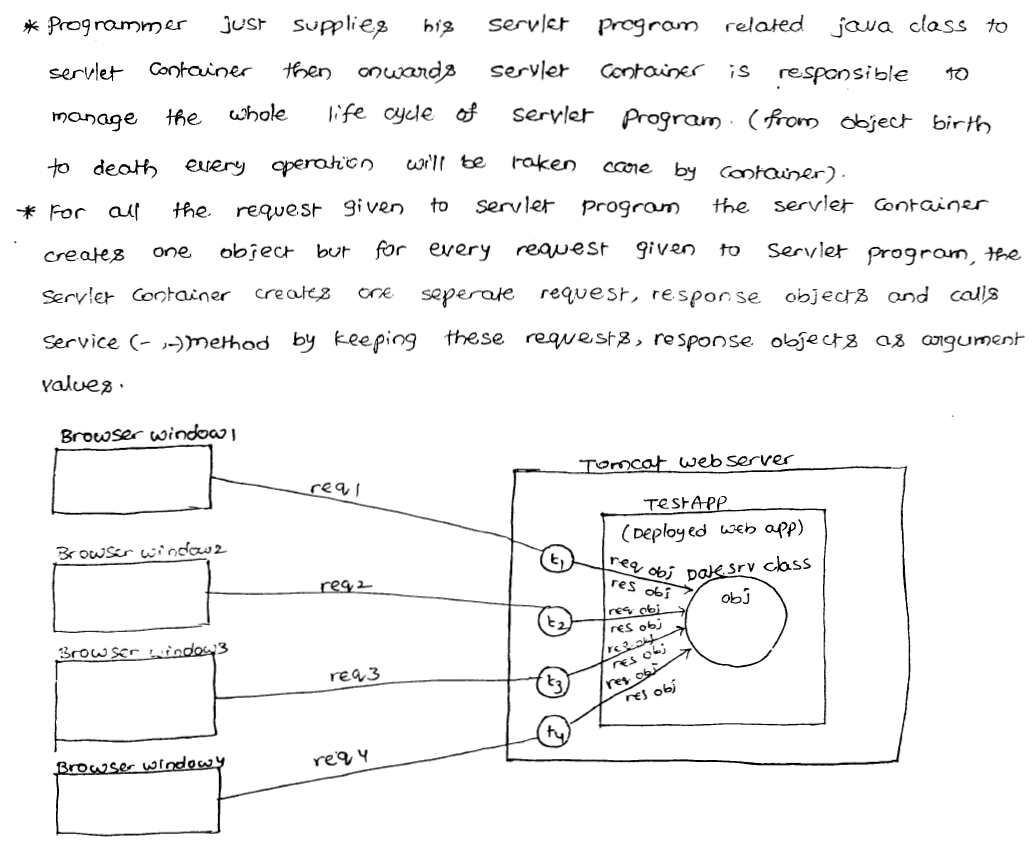 * Programmer just supplies his servlet program related java class to
servlet Container then onwards servlet Container is responsible to
manage the whole life cycle of servlet Program. (from object birth
to death every operation will be taken care by container).
* For all the request given to servlet program the servlet Container
creates one object but for every request given to Servlet program, the
Servlet Container creates one seperate request, response objects and calls
Service (-,-) method by keeping these requests, response objects as argument
values.
Browser window1
Tomcat webserver
req1
TestApp
(Deployed web app)
Browser window2
t1
req obj
Datesrv class
res obj
obj
req2
t2
req obj
res obj
Browser window3
req obj
res obj
req3
t3
req obj
res obj
t4
Browser window4
req4